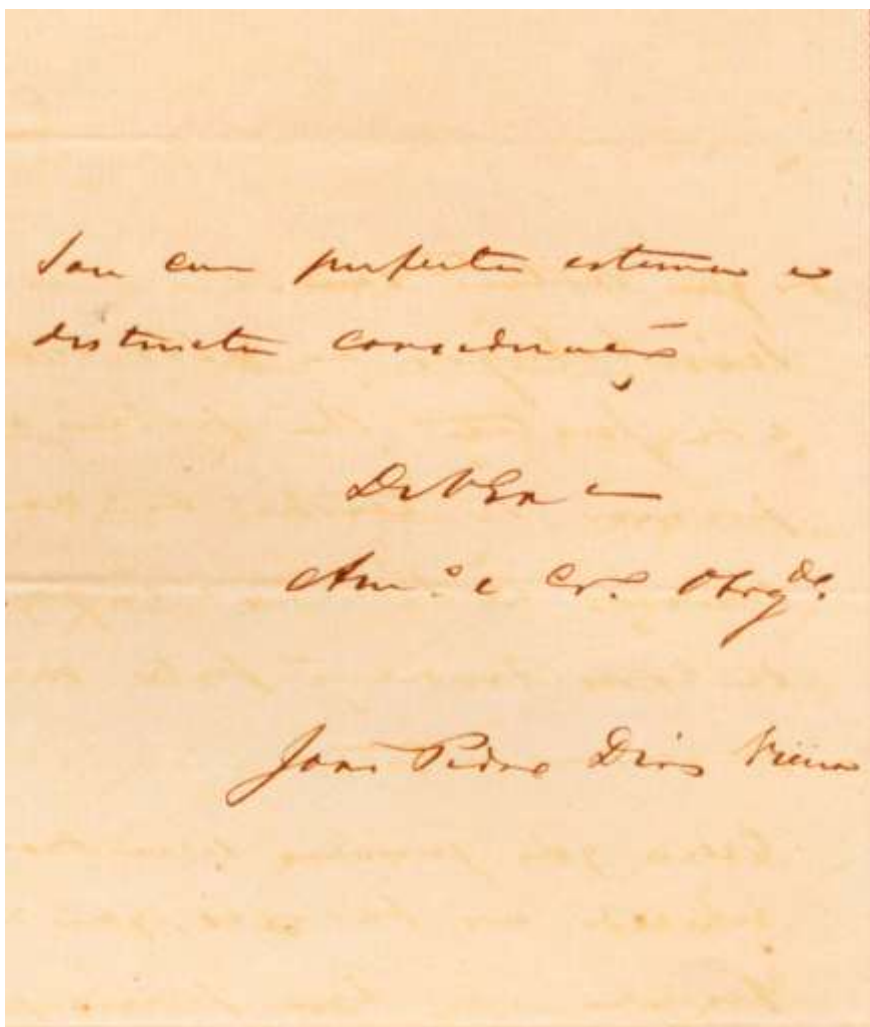 Sou com perfeita estima e
distincta consideração
De V Exc
Am.º e Cr.º Obrg.do
João Pedro Dias Vieira